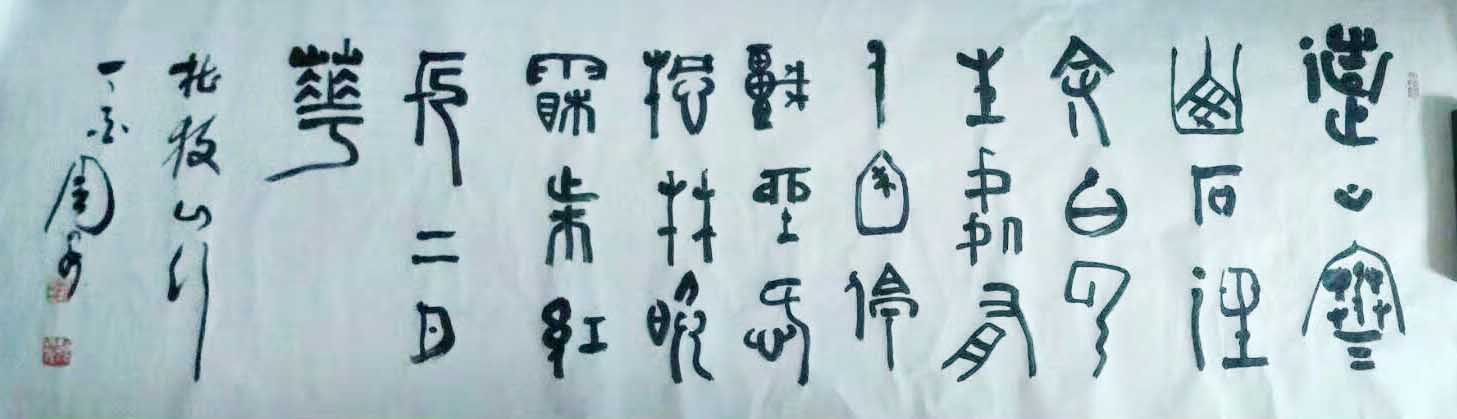 遠上寒
山石徑
斜白雲
生處有
人家停
車坐愛
楓林晚
霜葉紅
於二月
華
杜牧山行
丁酉周